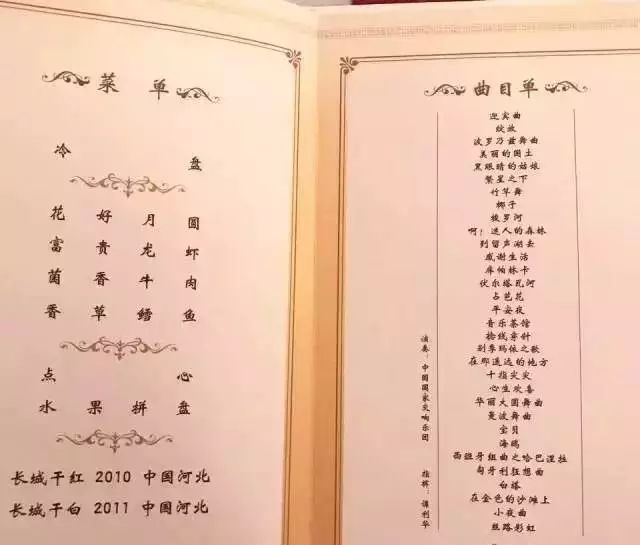 菜单
冷盘
花好月圆
富贵龙虾
菌香牛肉
香草鳕鱼
点心
水果拼盘
长城干红 2010 中国河北
长城干白 2011 中国河北
曲目单
迎宾曲
绽放
波罗乃兹舞曲
美丽的国土
黑眼睛的姑娘
繁星之下
竹竿舞
椰子
梭罗河
啊！迷人的森林
到留声湖去
感谢生活
库帕林卡
伏尔塔瓦河
占芭花
平安夜
音乐茶馆
捻线穿针
别季玛依之歌
在那遥远的地方
十指尖尖
心生欢喜
华丽大圆舞曲
曼波舞曲
宝贝
海鸥
西班牙组曲之哈巴涅拉
匈牙利狂想曲
白塔
在金色的沙滩上
小夜曲
丝路彩虹
演奏：中国国家交响乐团
指挥：谭利华